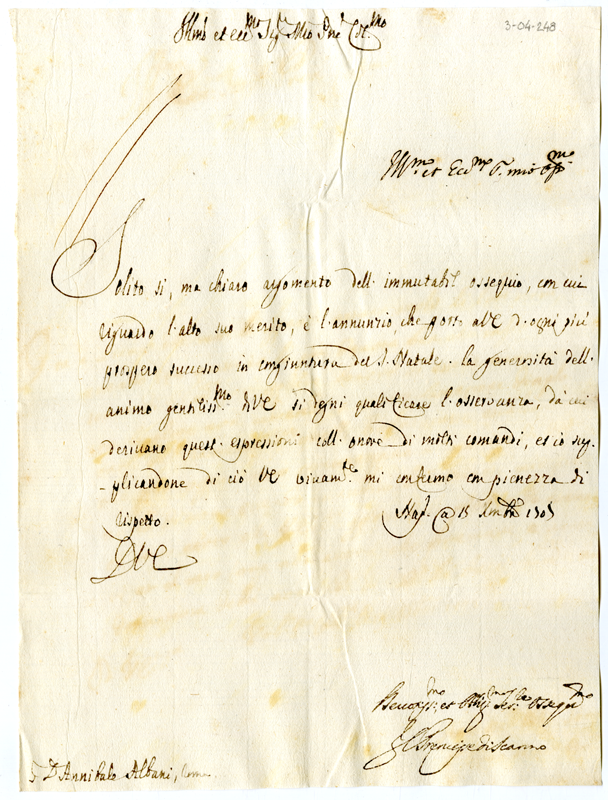 3-04-248
Ill.mo et ecc.mo Sig.r Mio
Ill.mo et Ecc.mo S. mio
Solito si, ma chiaro argomento dell' immutabil ossequio, con cui
riguardo l'alto suo merito, è l'annunzio che porto a VE d'ogni più
prospero successo in congiuntura del S. Natale. la generosità dell'
animo gentiliss.mo di VE si degni qualificare l'osservanza, da cui
derivano quest' espressioni coll' onore di molti comandi, et io sup-
-plicandone di ciò VE vivam.te mi confermo con pienezza di
rispetto.
Nap. 15 Xmbre
DVE
et Ser.
Il Prencipe di Scanno
S. D Annibale Albani, Roma